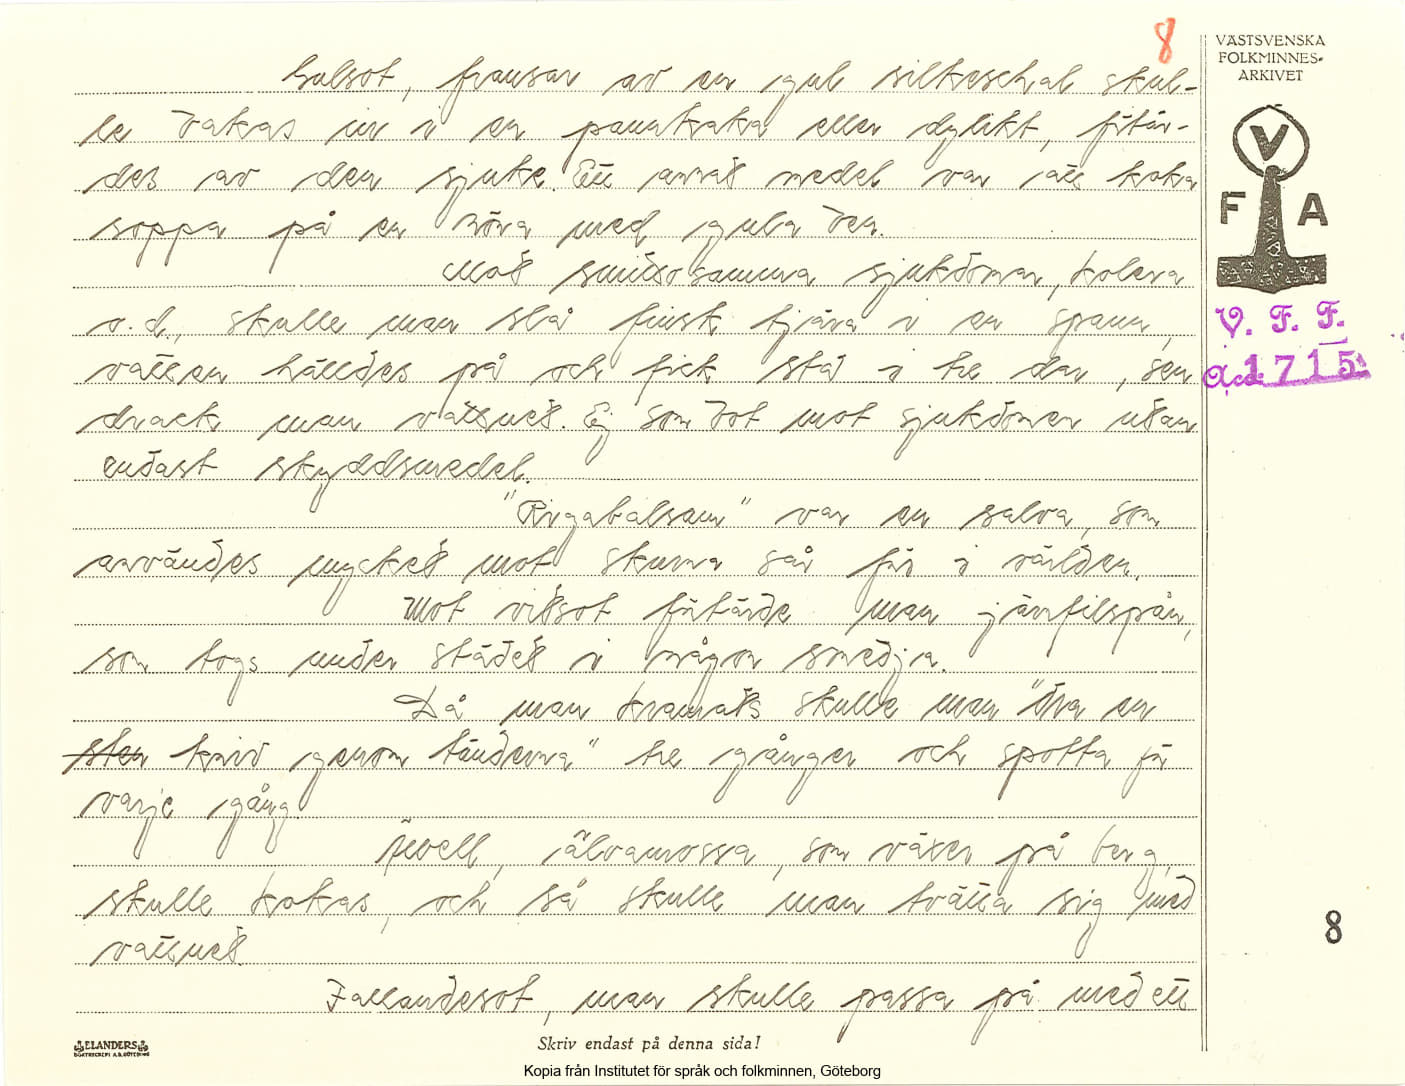 8
VÄSTSVENSKA
FOLKMINNES-
ARKIVET
V
F A
V. F. F.
Acc. 1715:
Gulsot, fransar av en gul silkeschal skul-
le bakas in i en pannkaka eller dylikt, förtär-
des av den sjuke. Ett annat medel var att koka
soppa på en höna med gula ben.
Mot smittosamma sjukdomar, kolera
o.d., skulle man slå finsk tjära i en spann,
vatten hälldes på och fick stå i tre dar, sen
drack man vattnet. Ej som bot mot sjukdomen utan
endast skyddsmedel.
"Rigabalsam" var en salva, som
användes mycket mot skurna sår förr i världen.
Mot vitsot förtärde man järnfilspån,
som togs under städet i någon smedja.
Då man kramats skulle man "dra en
sten kniv genom tänderna" tre gånger och spotta för
varje gång.
älvamossa, som växer på berg,
skulle kokas, och så skulle man tvätta sig med
vattnet.
Fallandesot, man skulle passa på med ett
8
ELANDERS
BOKTRYCKERI A.B. GÖTEBORG
Skriv endast på denna sida!
Kopia från Institutet för språk och folkminnen, Göteborg